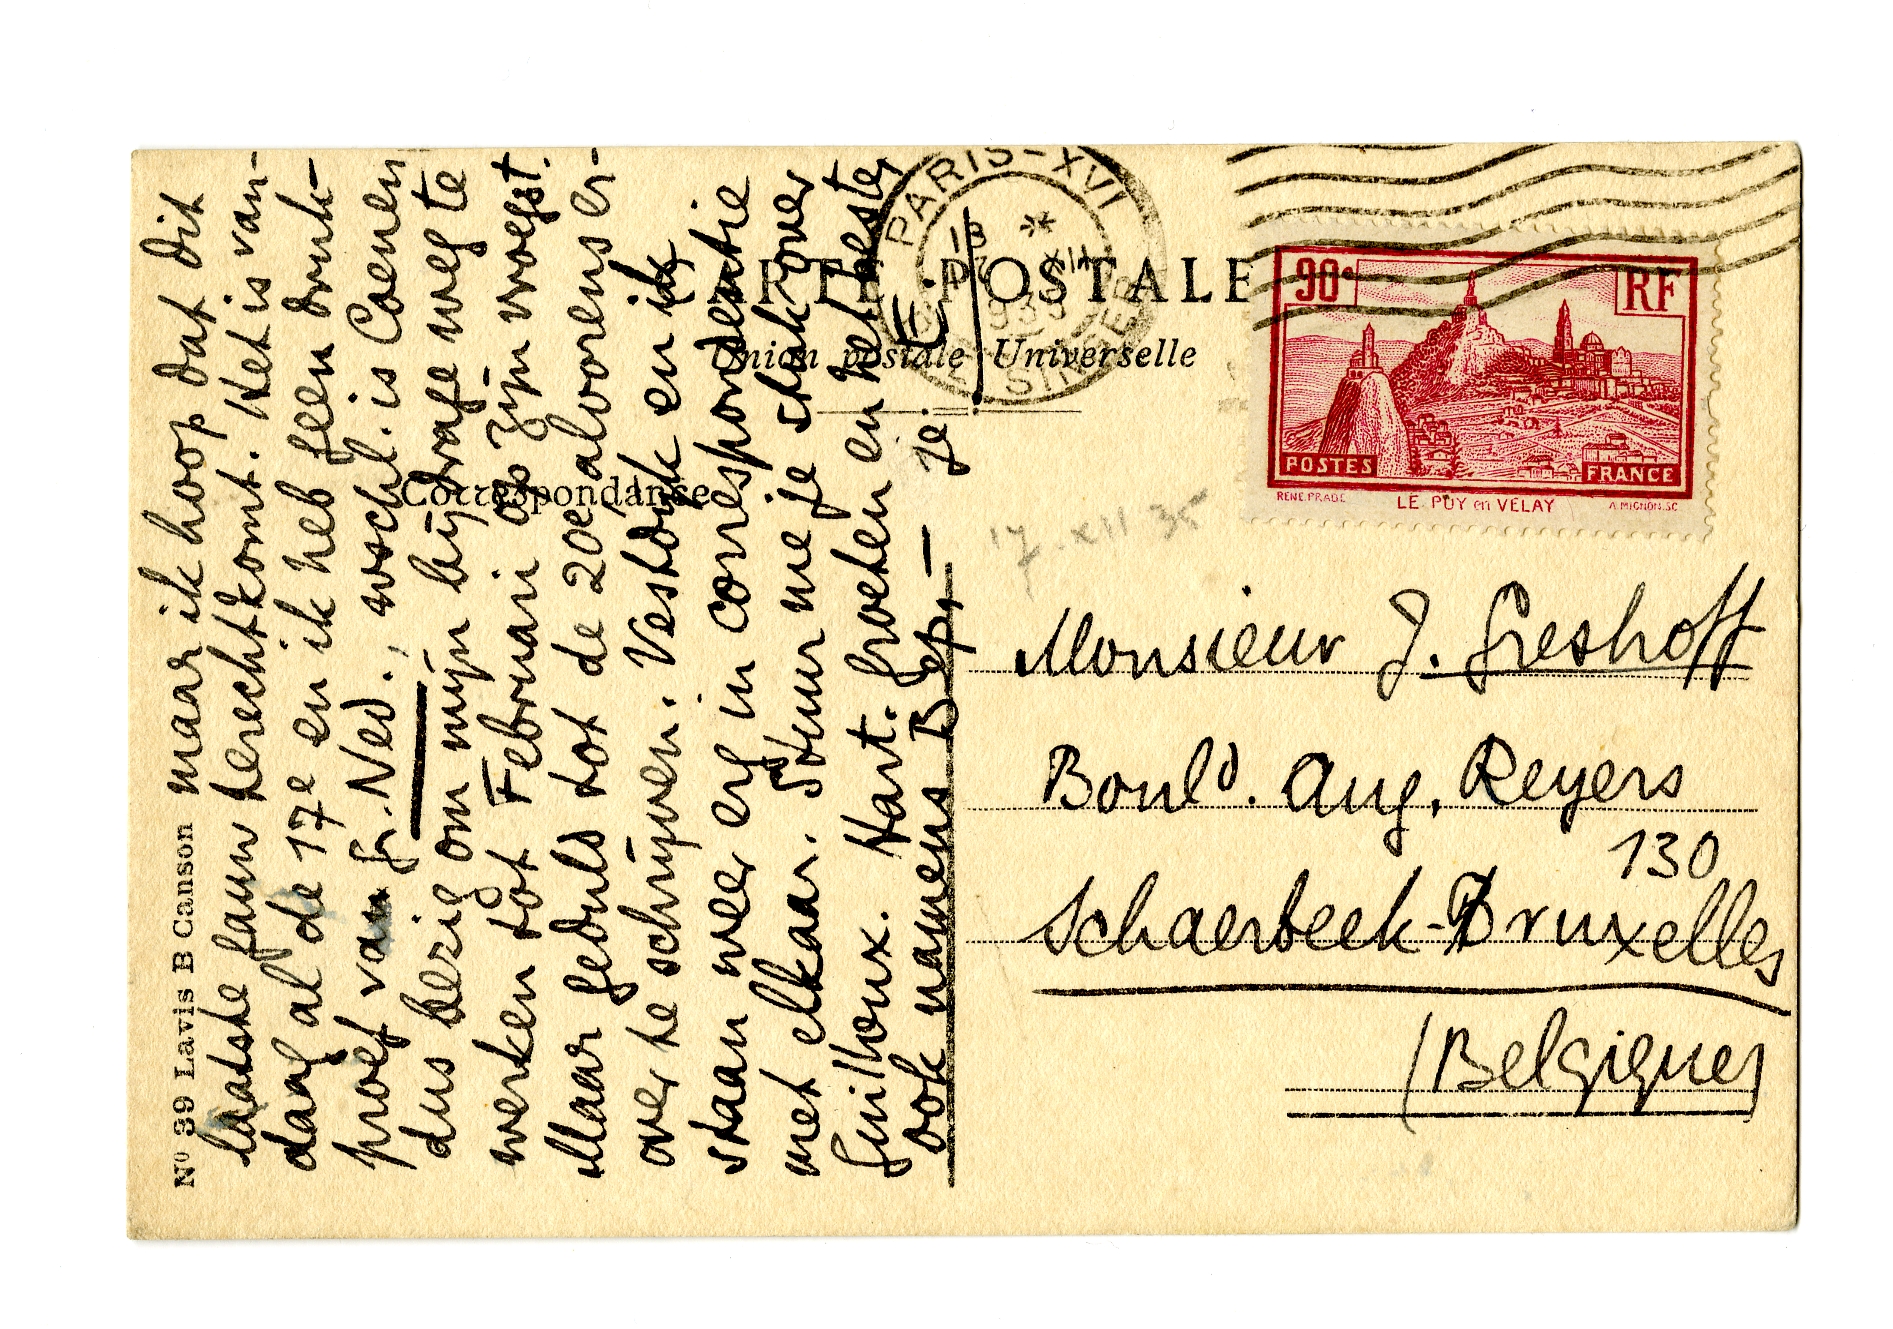 CARTE POSTALE
Union postale Universelle
Correspondance
No 39 Lavis B Canson
maar ik hoop dat dit
laatste faun terechtkomt. Het is van-
daag al de 17e en ik heb geen druk-
proef van Gr. Ned., wschl. is Coenen
dus bezig om mijn bijdrage weg te
werken tot Februari op zijn vroegst.
Maar geduld tot de 20e alvorens er-
over te schrijven. Vestdijk en ik
staan weer erg in correspondentie
met elkaar. Stuur me je stuk over
Guilloux. Hart. groeten en het beste,
ook namens Bep, — je
E
PARIS-XVI
18
XII
R. SINGER
90c
RF
POSTES
FRANCE
RENE.PRADE
LE PUY en VELAY
A.MIGNON.SC
17.XII 35
Monsieur J. Greshoff
Bould. Aug. Reyers
130
Schaerbeek-Bruxelles
(Belgique)